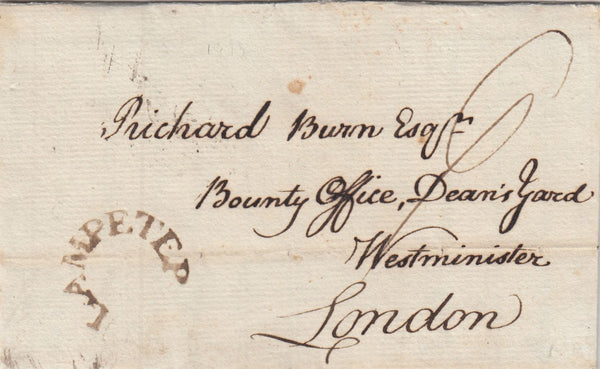 Richard Burn Esqr
Bounty Office, Dean's Yard
Westminister
London
LAMPETER